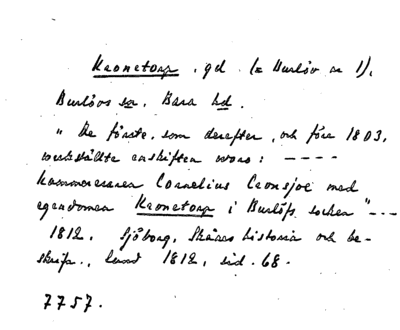 Kronetorp, gd. (= Burlöv nr 1),
Burlövs sn, Bara hd.
"De förste, som derefter, och före 1803,
werkställte enskiften woro: ----
kammereraren Cornelius Cronsjoe med
egendomen Kronetorp i Burlöfs socken" ---
1812. Sjöborg, Skånes historia och be-
skrifn., Lund 1812, sid. 68.
7757.